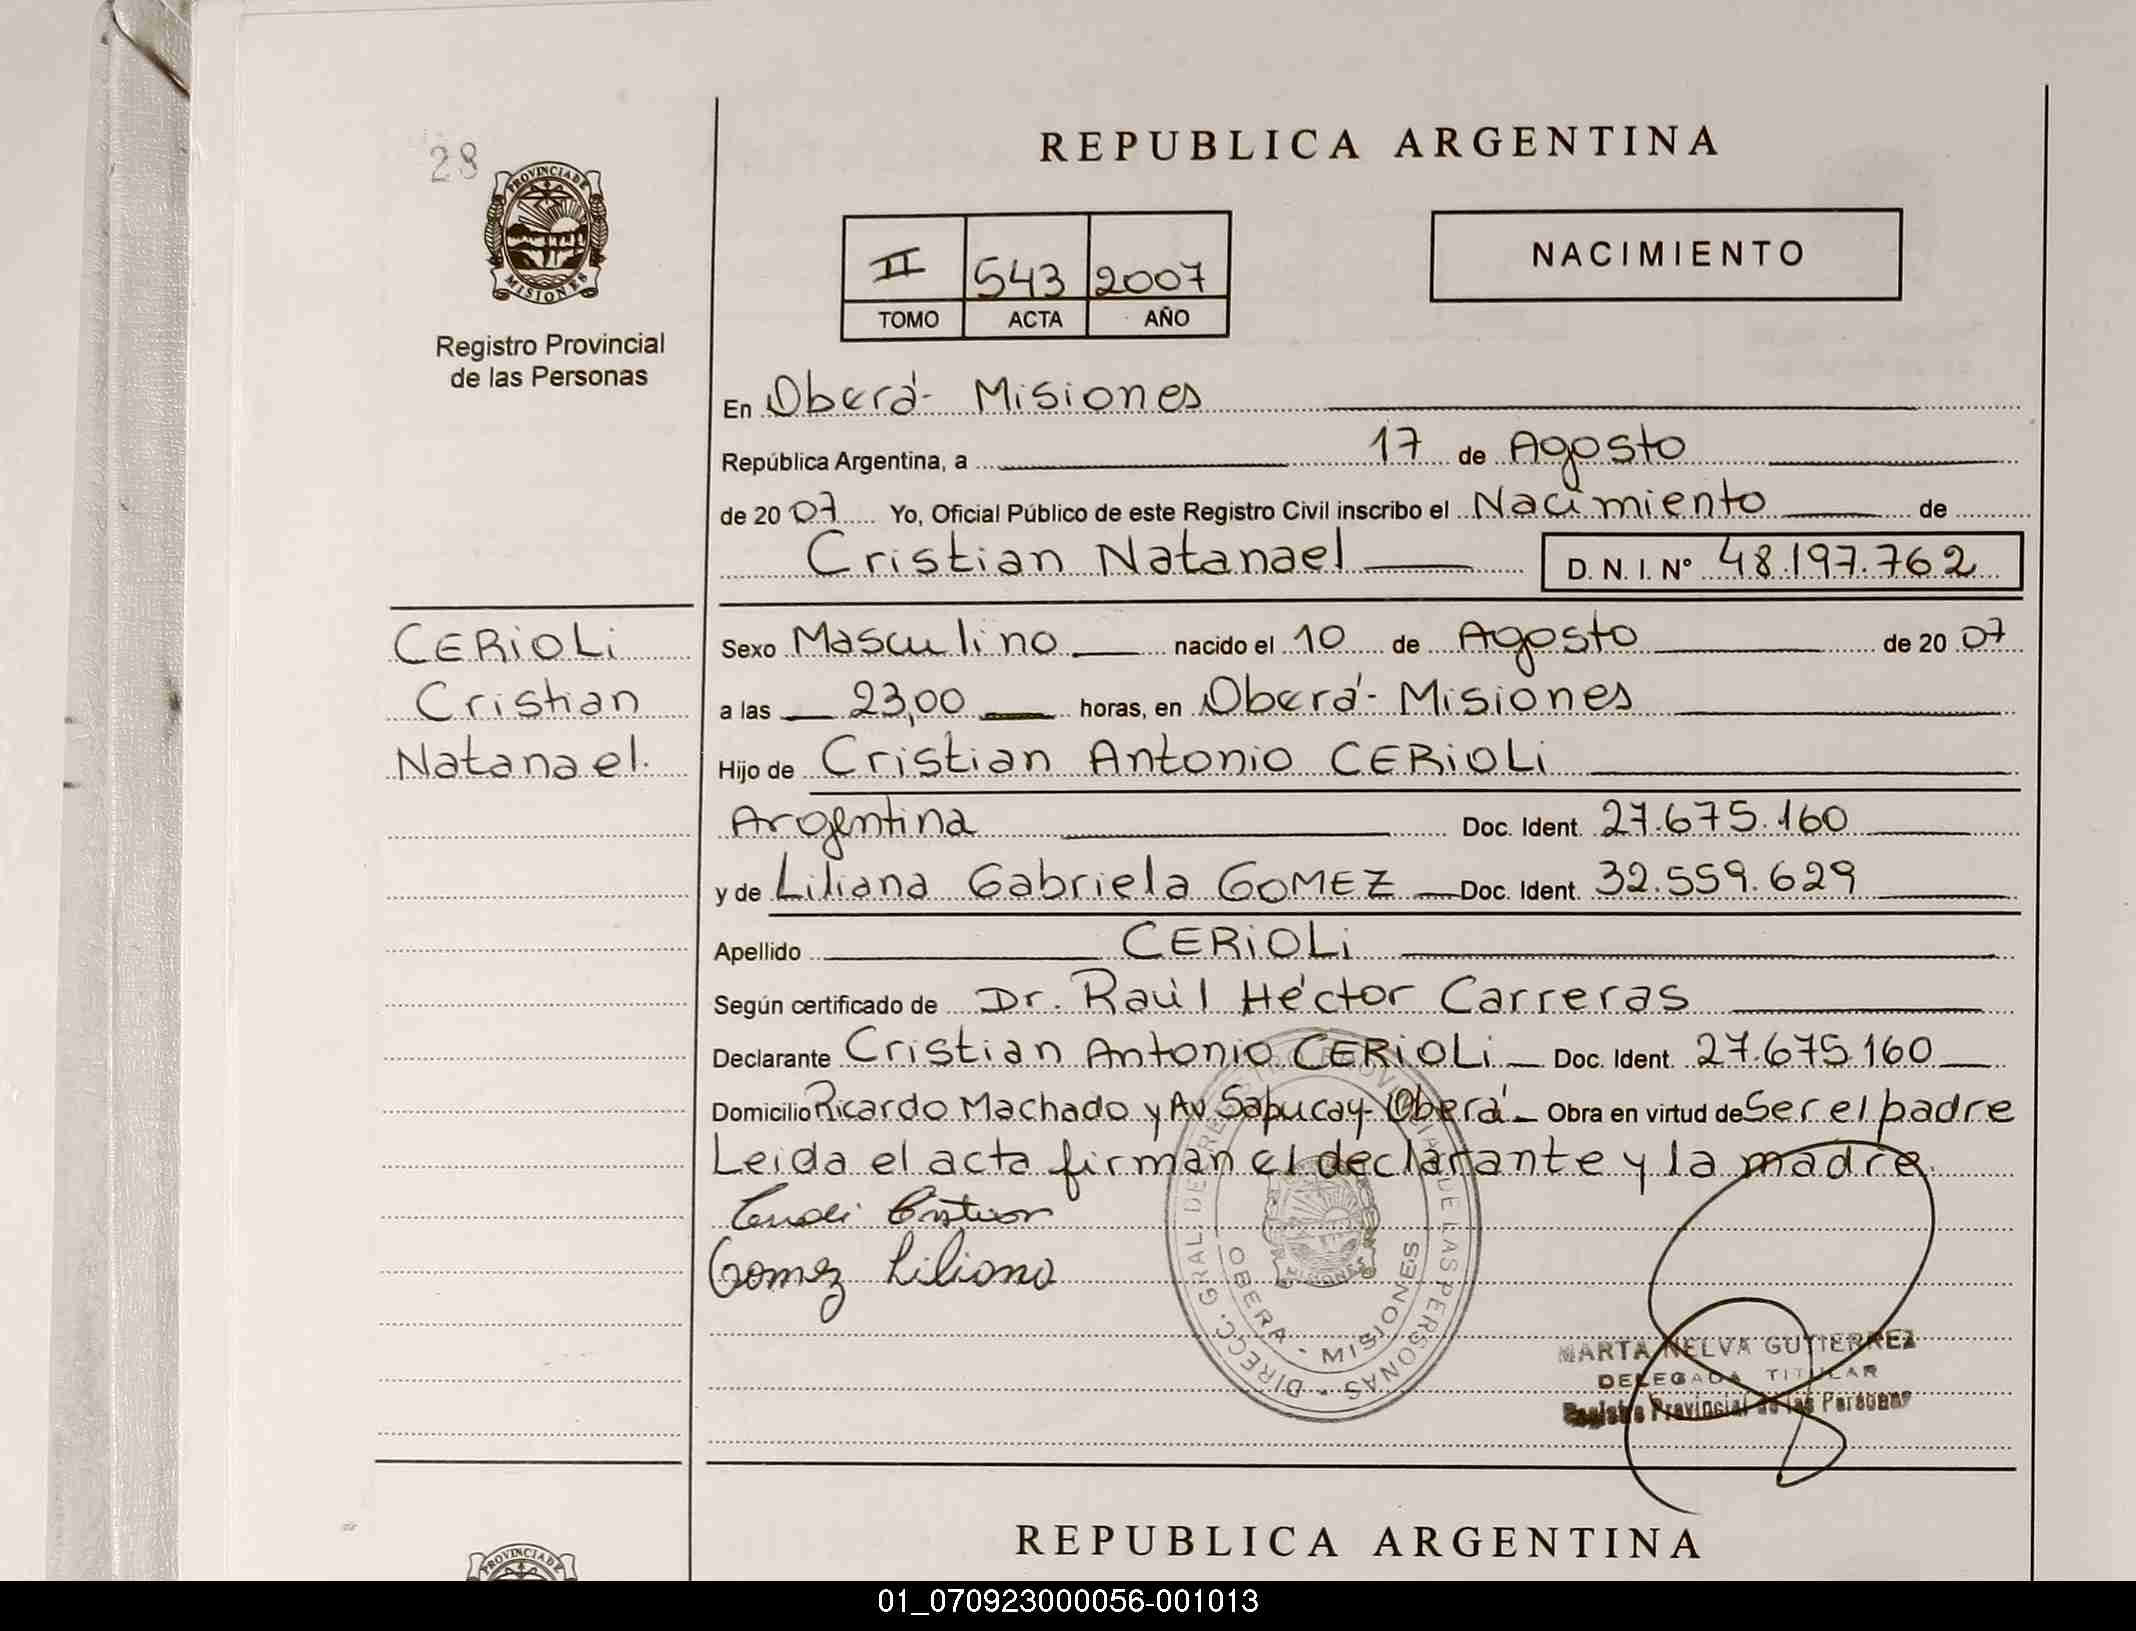 28
PROVINCIA DE
MISIONES
Registro Provincial
de las Personas
REPUBLICA ARGENTINA
II 543 2007
TOMO ACTA AÑO
NACIMIENTO
En Oberá- Misiones
República Argentina, a 17 de Agosto
de 2007 Yo, Oficial Público de este Registro Civil inscribo el Nacimiento de
Cristian Natanael D. N. I. Nº 48.197.762
CERIOLI
Cristian
Natanael.
Sexo Masculino nacido el 10 de Agosto de 2007
a las 23,00 horas, en Oberá- Misiones
Hijo de Cristian Antonio CERIOLI
Argentina Doc. Ident. 27.675.160
y de Liliana Gabriela GOMEZ Doc. Ident. 32.559.629
Apellido CERIOLI
Según certificado de Dr. Raúl Héctor Carreras
Declarante Cristian Antonio CERIOLI Doc. Ident. 27.675.160
Domicilio Ricardo Machado y Av Sapucay- Oberá Obra en virtud de Ser el padre
Leida el acta firman el declarante y la madre.
Gomez Liliana
DIRECC. GRAL. DE REGISTRO PROVINCIAL DE LAS PERSONAS
OBERA - MISIONES
MARTA NELVA GUTIERREZ
DELEGADA TITULAR
Registro Provincial de las Personas
REPUBLICA ARGENTINA
PROVINCIA DE
01_070923000056-001013